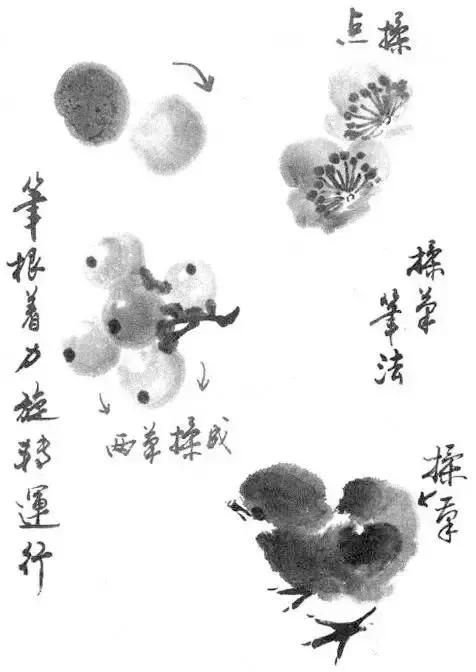 点揉
揉笔
筆法
筆根着力旋轉運行
两笔揉成
揉笔